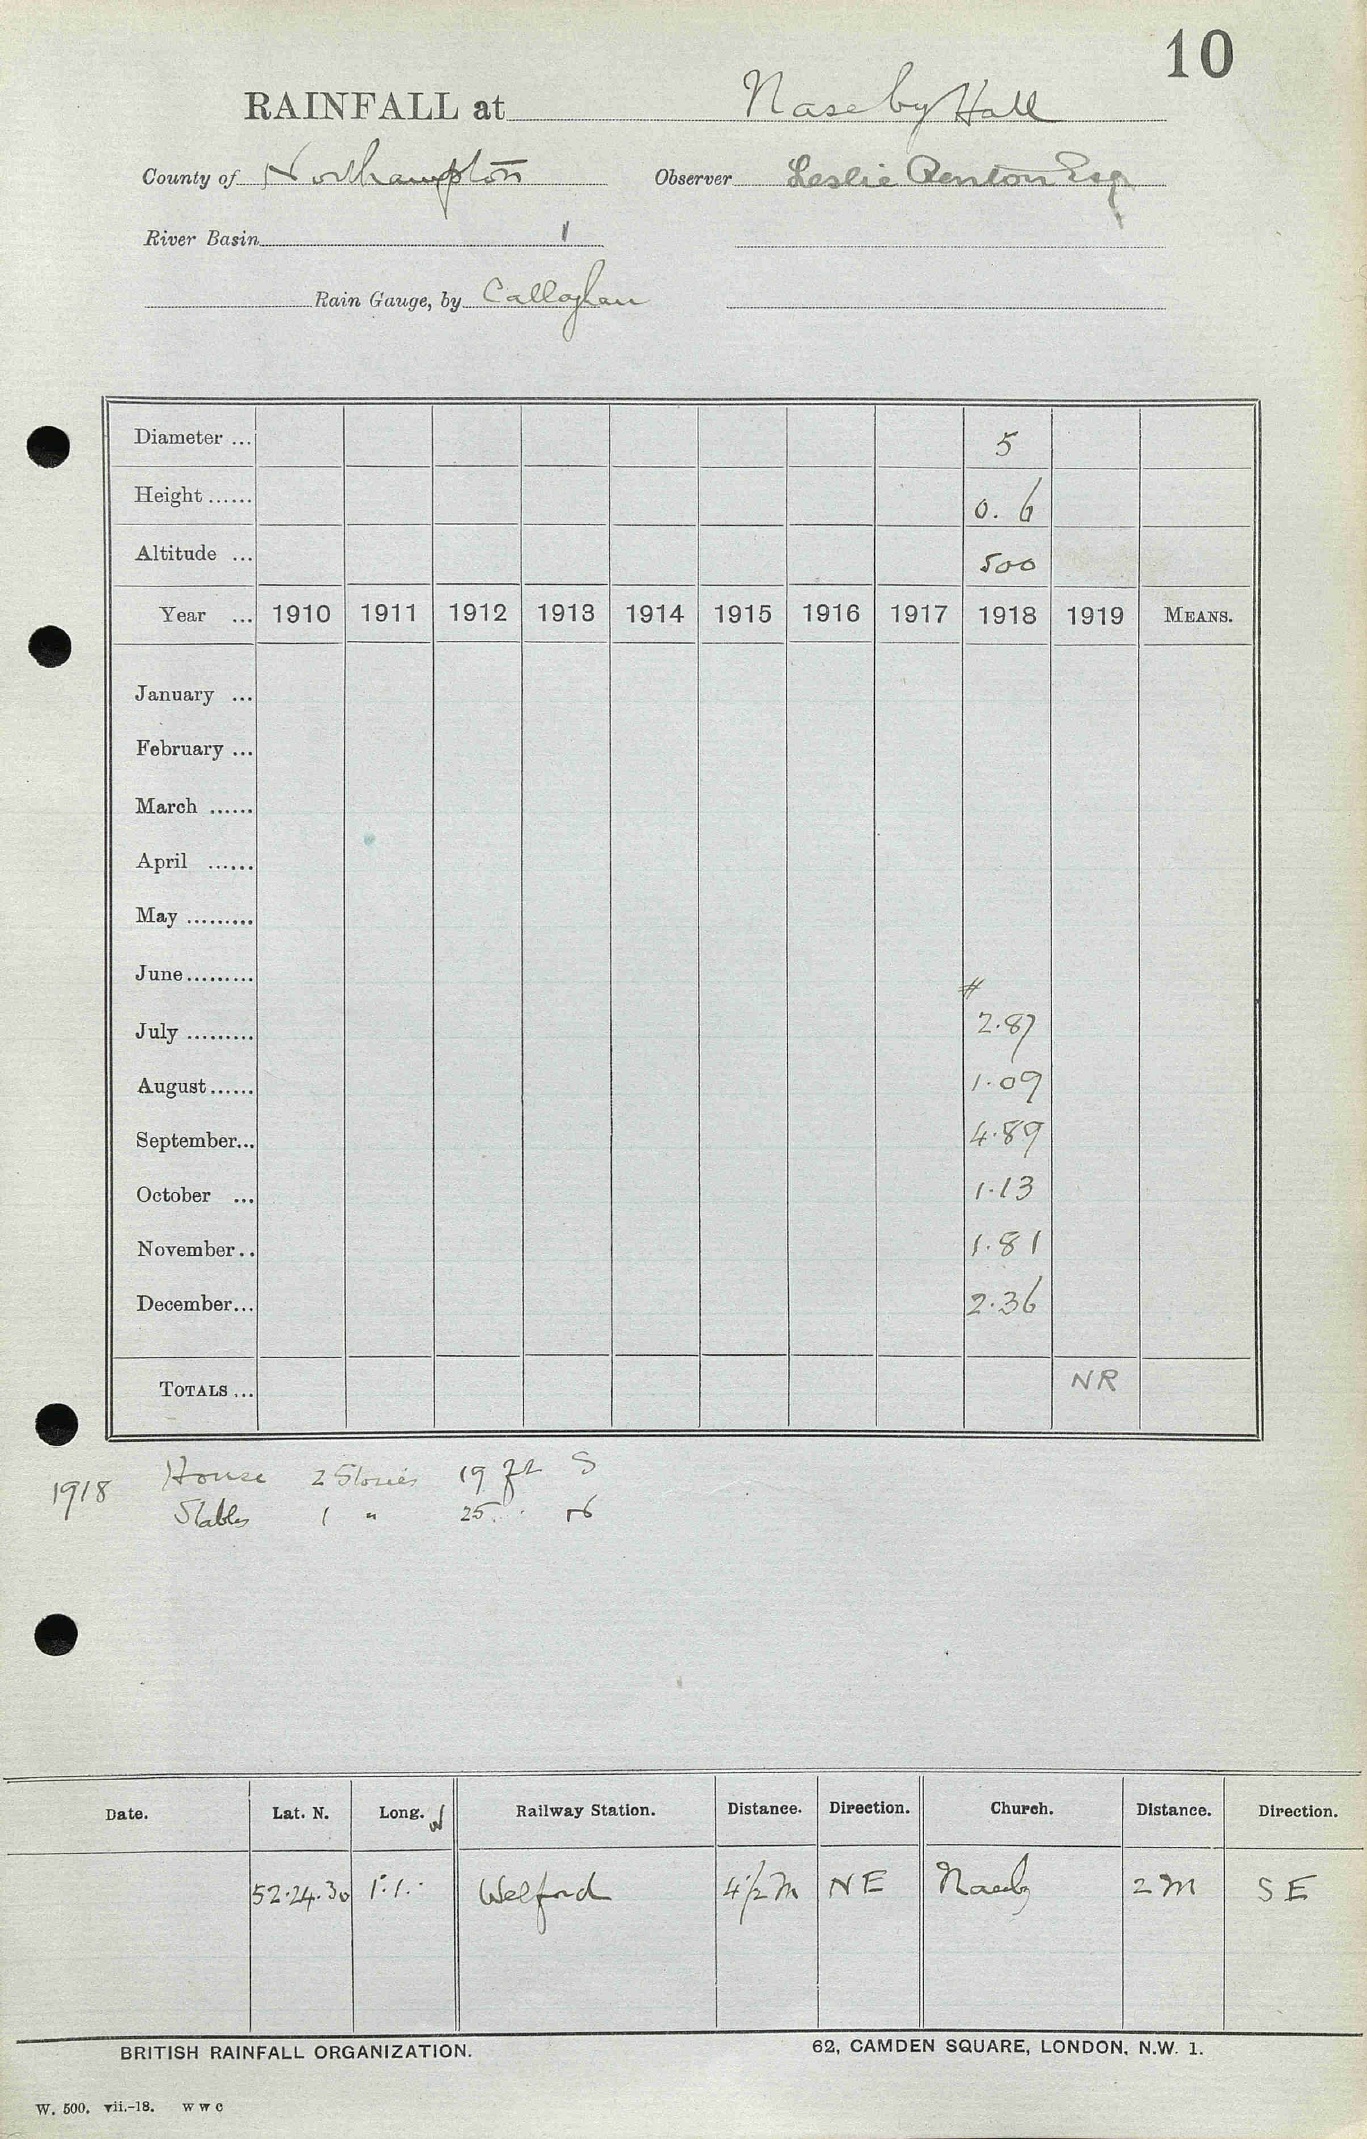 10
RAINFALL at Naseby Hall
County of Northampton Observer Leslie Renton Esq
River Basin 1
Rain Gauge, by Callaghan
Diameter ... 5
Height ...... 0. 6
Altitude ... 500
Year ... 1910 1911 1912 1913 1914 1915 1916 1917 1918 1919 MEANS.
January ...
February ...
March ......
April ......
May .........
June ......... #
July ......... 2.87
August ...... 1.09
September... 4.89
October ... 1.13
November .. 1.81
December... 2.36
TOTALS ... NR
1918 House 2 Stories 19 ft S
Stables 1 " 25
Date. Lat. N. Long. W Railway Station. Distance. Direction. Church. Distance. Direction.
52.24.30 1.1. Welford 4 1/2 M NE Naseby 2 M SE
BRITISH RAINFALL ORGANIZATION. 62, CAMDEN SQUARE, LONDON, N.W. 1.
W. 500. vii.-18. W W C